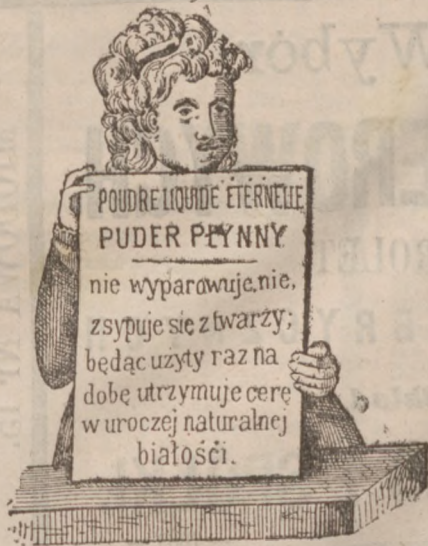 POUDRE LIQUIDE ETERNELLE
PUDER PŁYNNY
nie wyparowuje, nie,
zsypuje się z twarży;
będąc użyty raz na
dobę utrzymuje cerę
w uroczej naturalnej
białości.